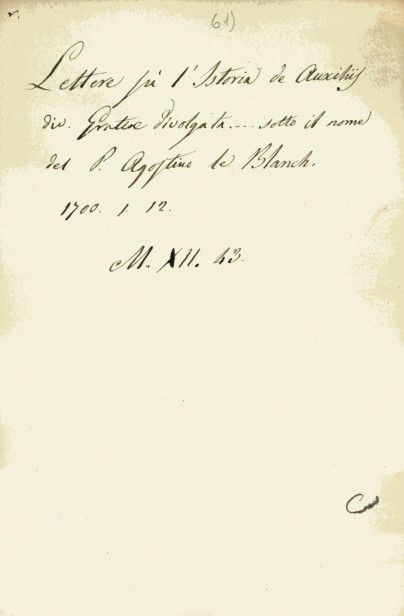 61)
Lettere su l'Istoria de Auxilijs
div. Gratiæ divolgata.... sotto il nome
del P. Agostino le Blanch.
1700. 1. 12.
M. XII. 43.